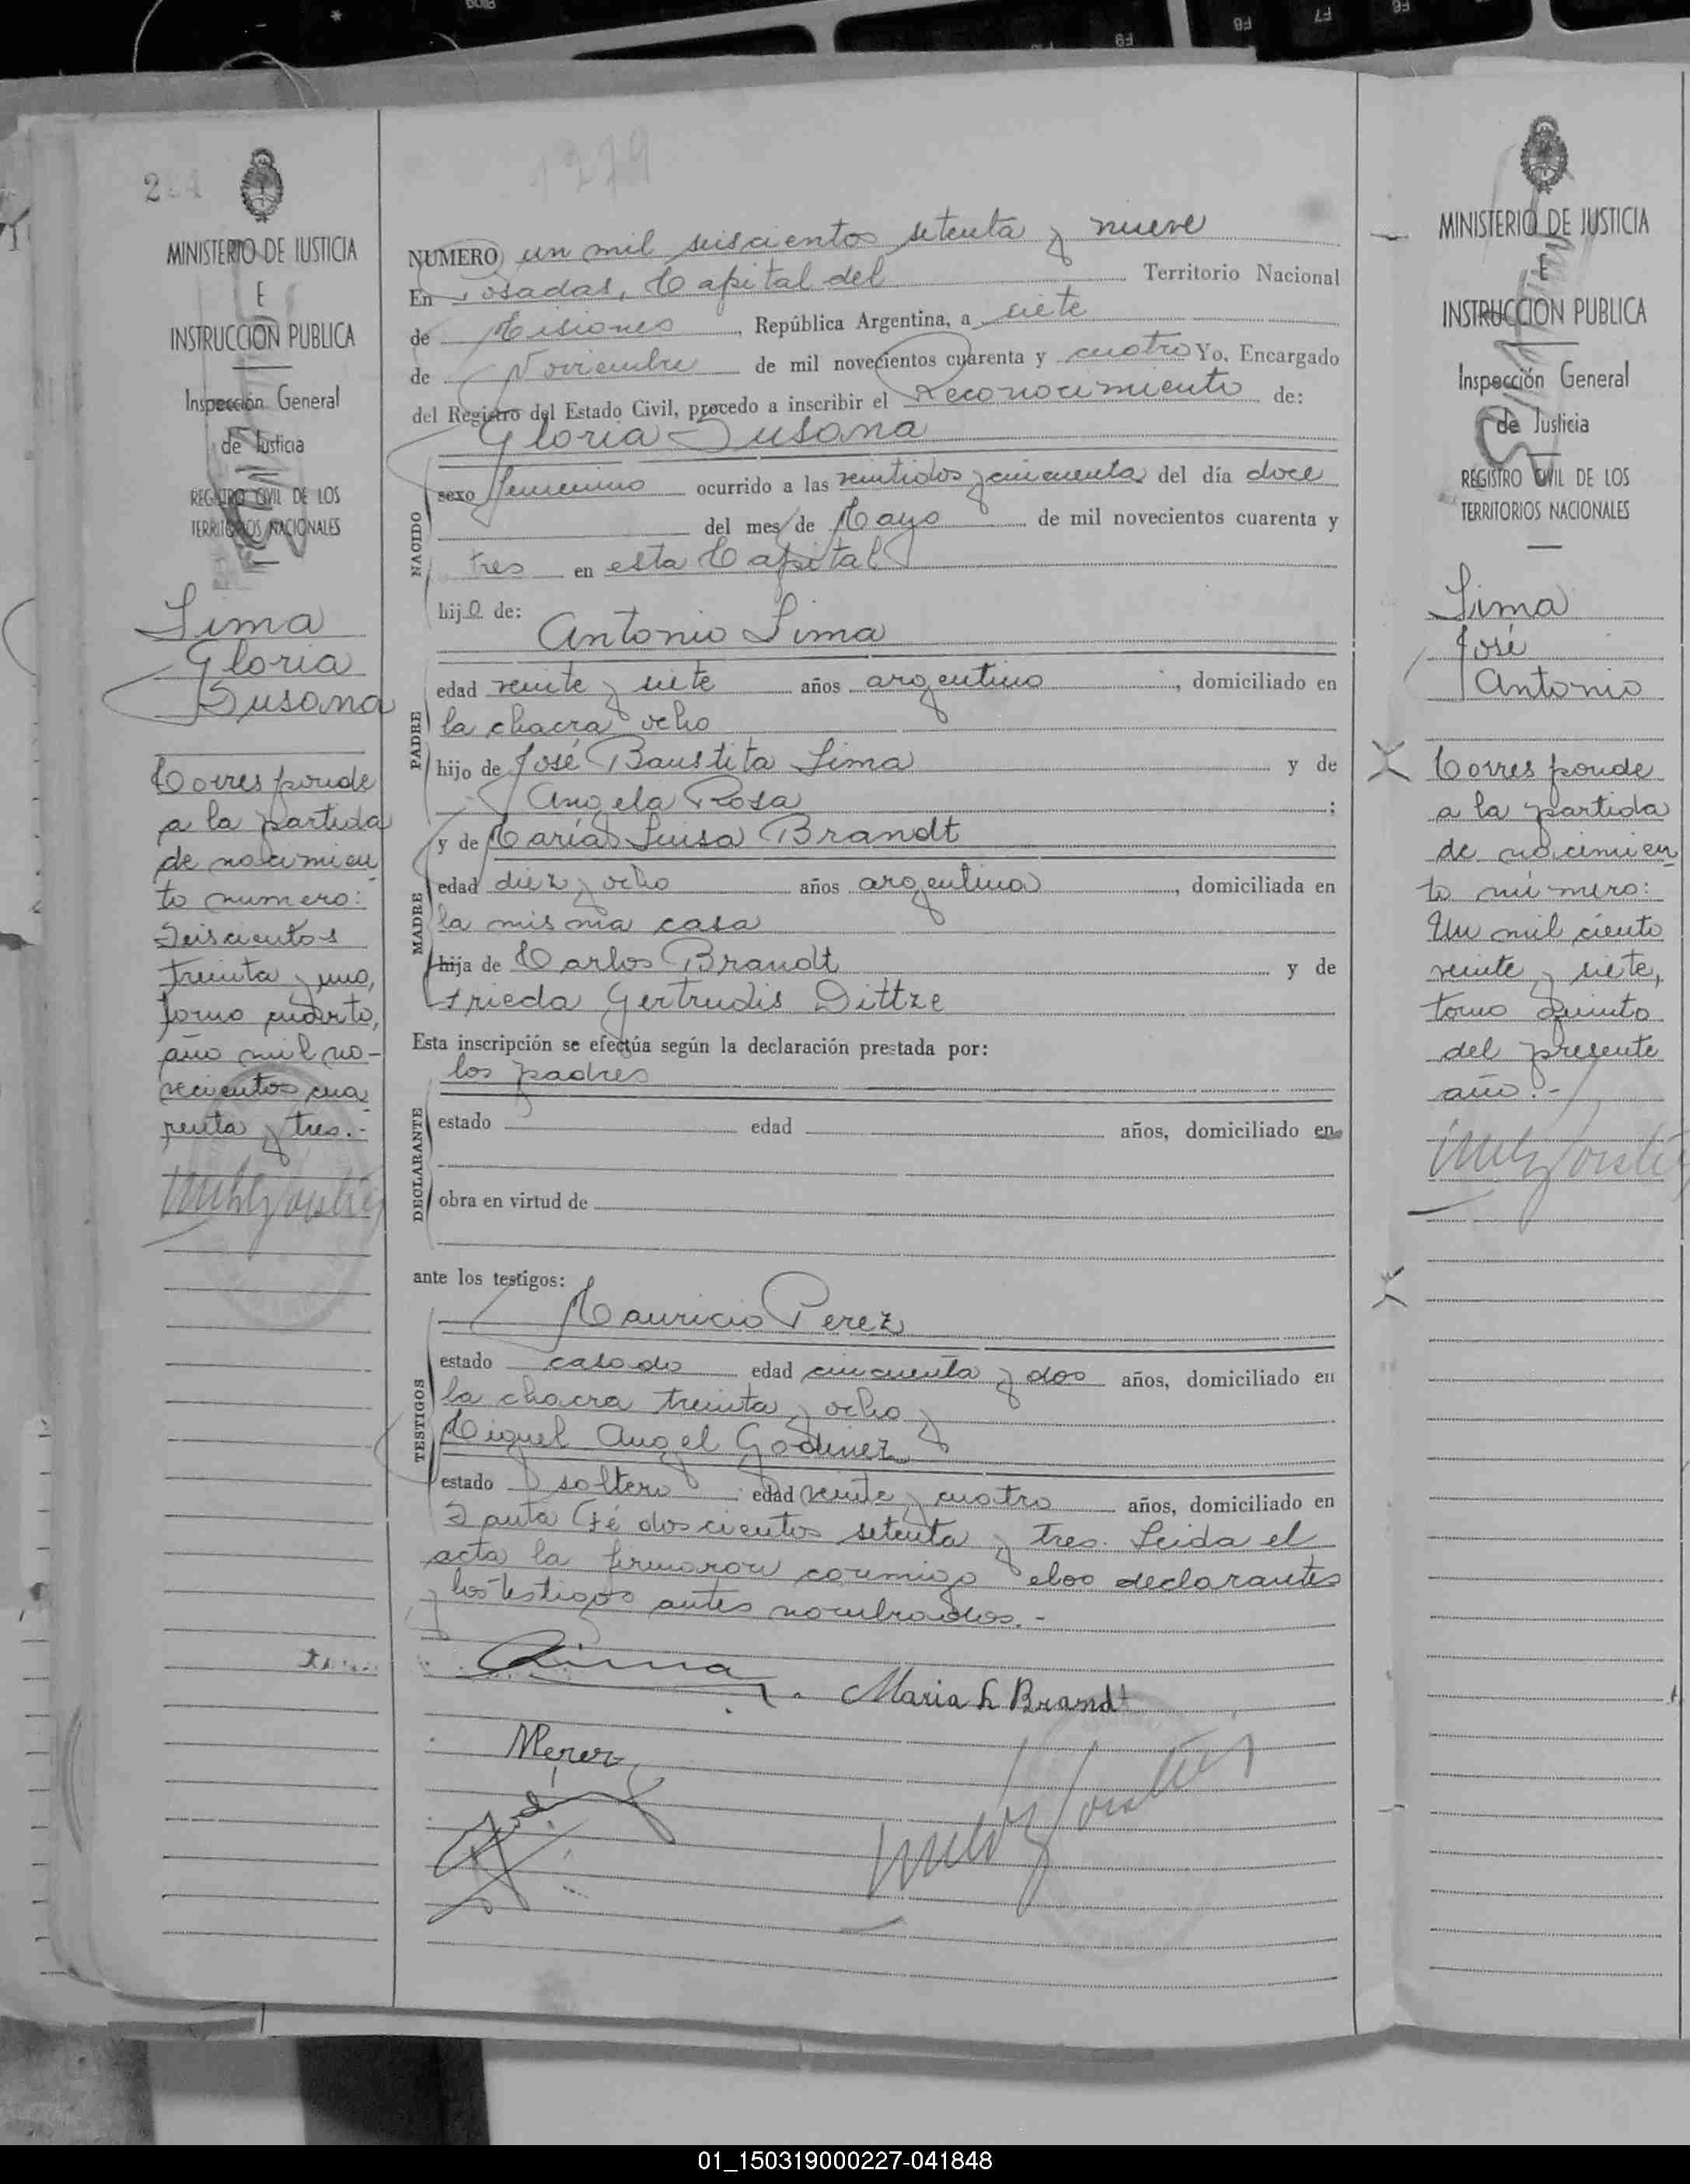 MINISTERIO DE JUSTICIA
E
INSTRUCCION PUBLICA
Inspección General
de Justicia
REGISTRO CIVIL DE LOS
TERRITORIOS NACIONALES
Lima
Gloria
Susana
Corresponde
a la partida
de nacimien
to numero:
Seiscientos
treinta y uno,
tomo cuarto,
año mil no-
vecientos cua
renta y tres.-
NUMERO un mil seiscientos setenta y nueve
En Posadas, Capital del Territorio Nacional
de Misiones, República Argentina, a siete
de Noviembre de mil novecientos cuarenta y cuatro Yo, Encargado
del Registro del Estado Civil, procedo a inscribir el Reconocimiento de:
Gloria Susana
NACIDO
sexo femenino ocurrido a las veintidos y cincuenta del día doce
del mes de Mayo de mil novecientos cuarenta y
tres en esta Capital
hija de:
Antonio Lima
PADRE
edad veinte y siete años argentino, domiciliado en
la chacra ocho
hijo de José Baustita Lima y de
Angela Rosa;
y de María Luisa Brandt
MADRE
edad diez y ocho años argentina, domiciliada en
la misma casa
hija de Carlos Brandt y de
Frieda Gertrudis Dittze
Esta inscripción se efectúa según la declaración prestada por:
los padres
DECLARANTE
estado edad años, domiciliado en
obra en virtud de
ante los testigos:
Mauricio Perez
TESTIGOS
estado casado edad cincuenta y dos años, domiciliado en
la chacra treinta y ocho y
Miguel Angel Godinez
estado soltero edad veinte y cuatro años, domiciliado en
Santa Fé doscientos setenta y tres. Leida el
acta la firmaron conmigo los declarantes
y los testigos antes nombrados.-
Lima
Maria L Brandt
MPerez
MINISTERIO DE JUSTICIA
E
INSTRUCCION PUBLICA
Inspección General
de Justicia
REGISTRO CIVIL DE LOS
TERRITORIOS NACIONALES
Lima
José
Antonio
Corresponde
a la partida
de nacimien
to número:
Un mil ciento
veinte y siete,
tomo quinto
del presente
año.-
01_150319000227-041848